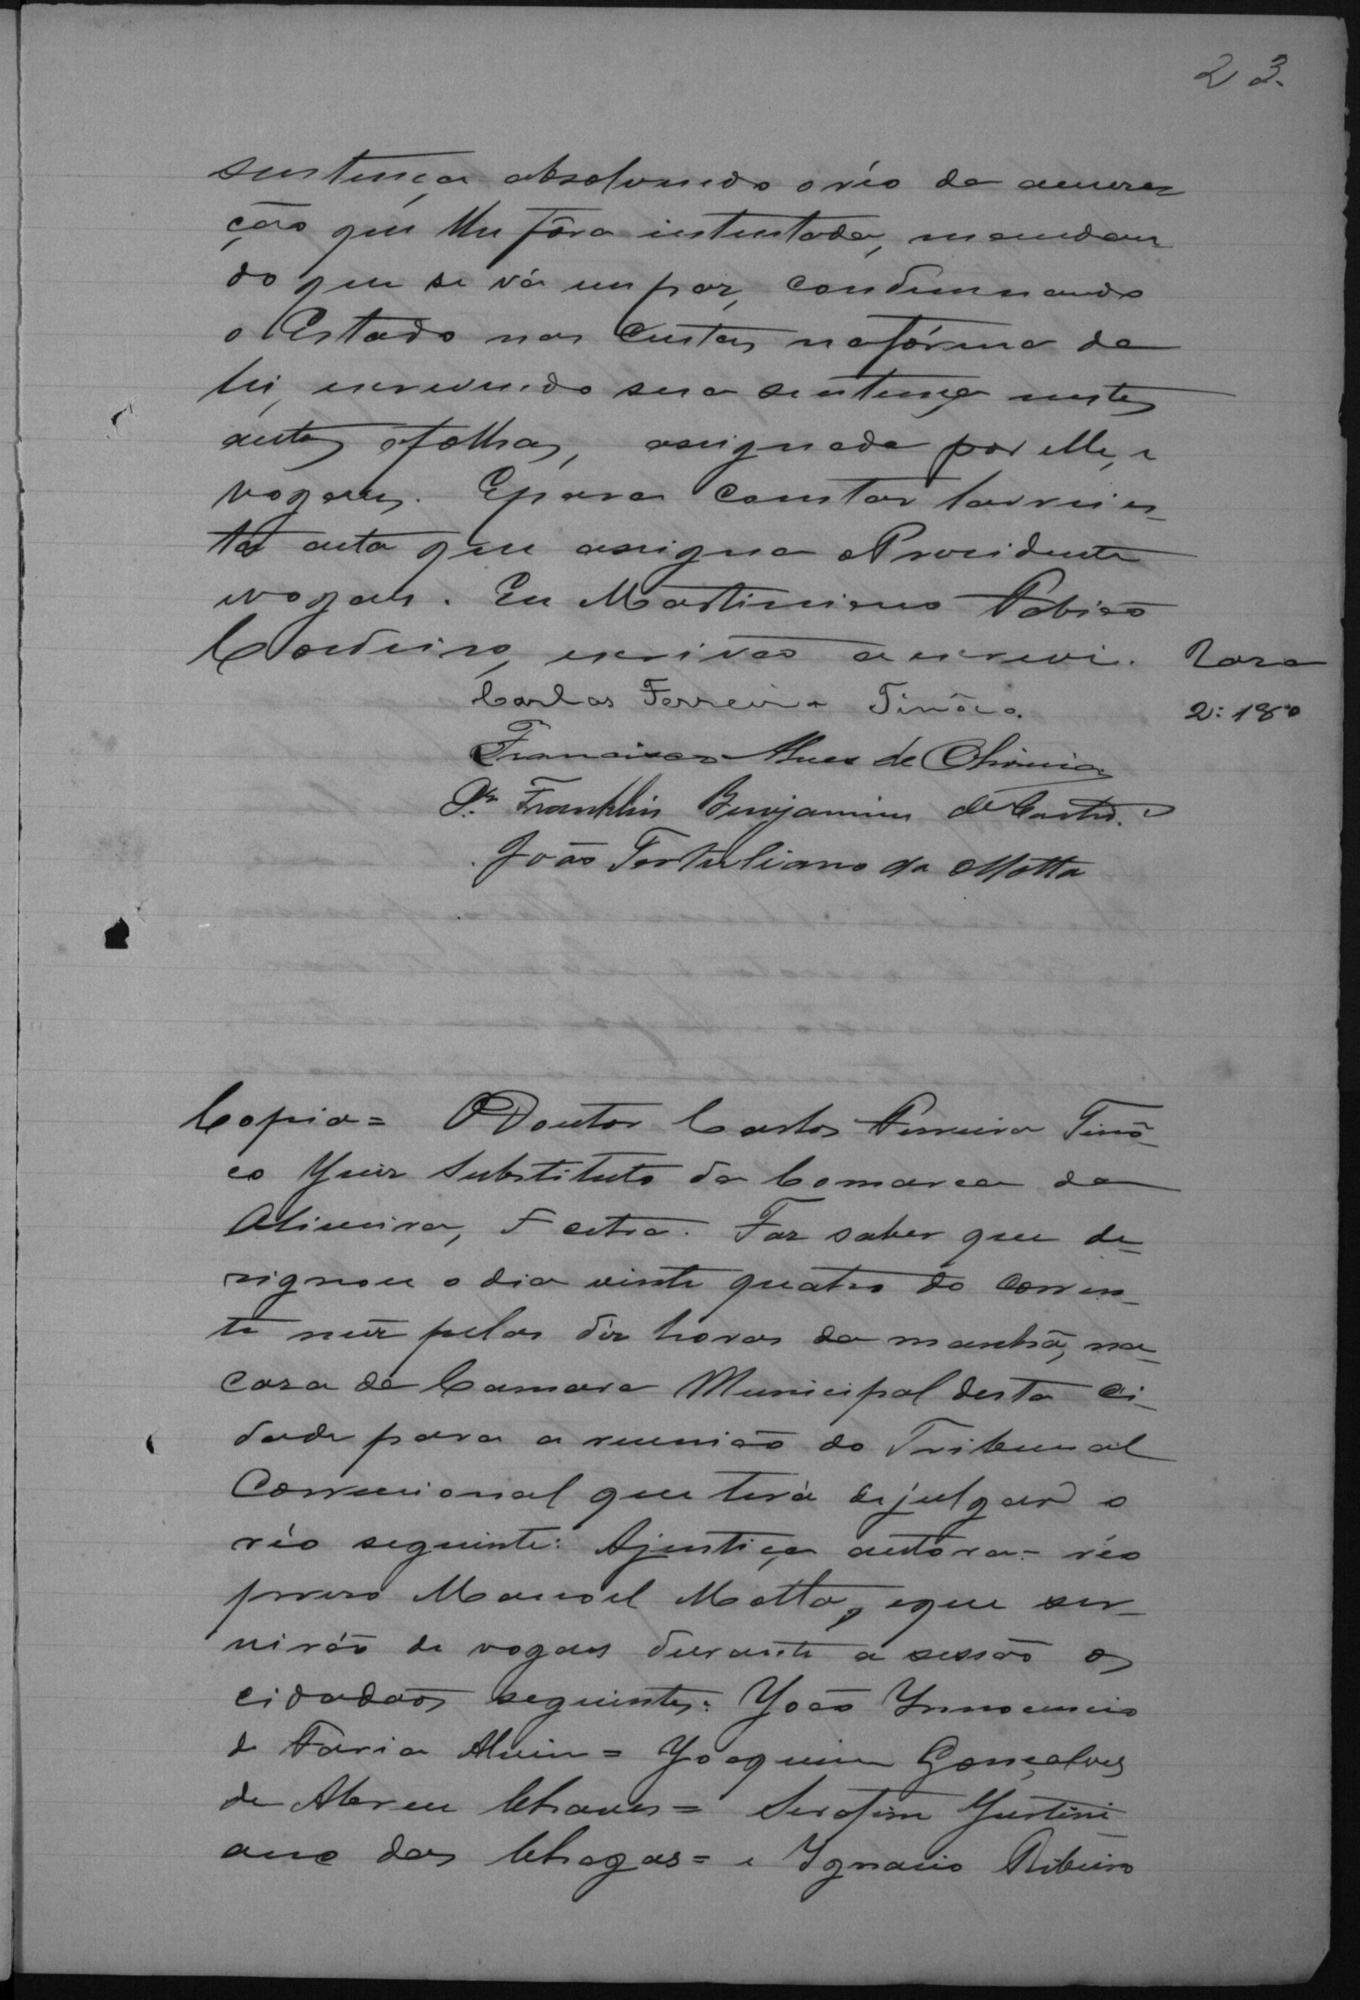 23.
sentença absolvendo o réo da accusa
ção que lhe fôra intentada, mandan
do que se vá em paz, condemnando
o Estado nas custas na fórma da
lei, escrevendo sua sentença nestes
autos e folhas, assignada por elle, e
vogaes. E para constar lavrei es-
ta acta que assigna o Presidente
e vogaes. Eu Martiniano Fabião
Cordeiro, escrivão a escrevi. Raza
Carlos Ferreira Tinôco. 2:180
Francisco Alves de Oliveira
Dr. Franklin Benjamim de Castro.
João Tertuliano da Motta
Copia = O Doutor Carlos Ferreira Tinô-
co Juiz Substituto da Comarca da
Oliveira, Fcetra. Faz saber que de-
signou o dia vinte quatro do corren-
te mez pelas dez horas da manhã, na
casa da Camara Municipal desta ci-
dade para a reunião do Tribunal
Correcional que terá de julgar o
réo seguinte: A justiça autora = réo
preso Manoel Motta, e que ser-
virão de vogaes durante a sessão os
cidadãos seguintes: João Innocencio
de Faria Alvim = Joaquim Gonçalves
de Abreu Chaves = Serafim Justini
ano das Chagas = e Ignacio Ribeiro